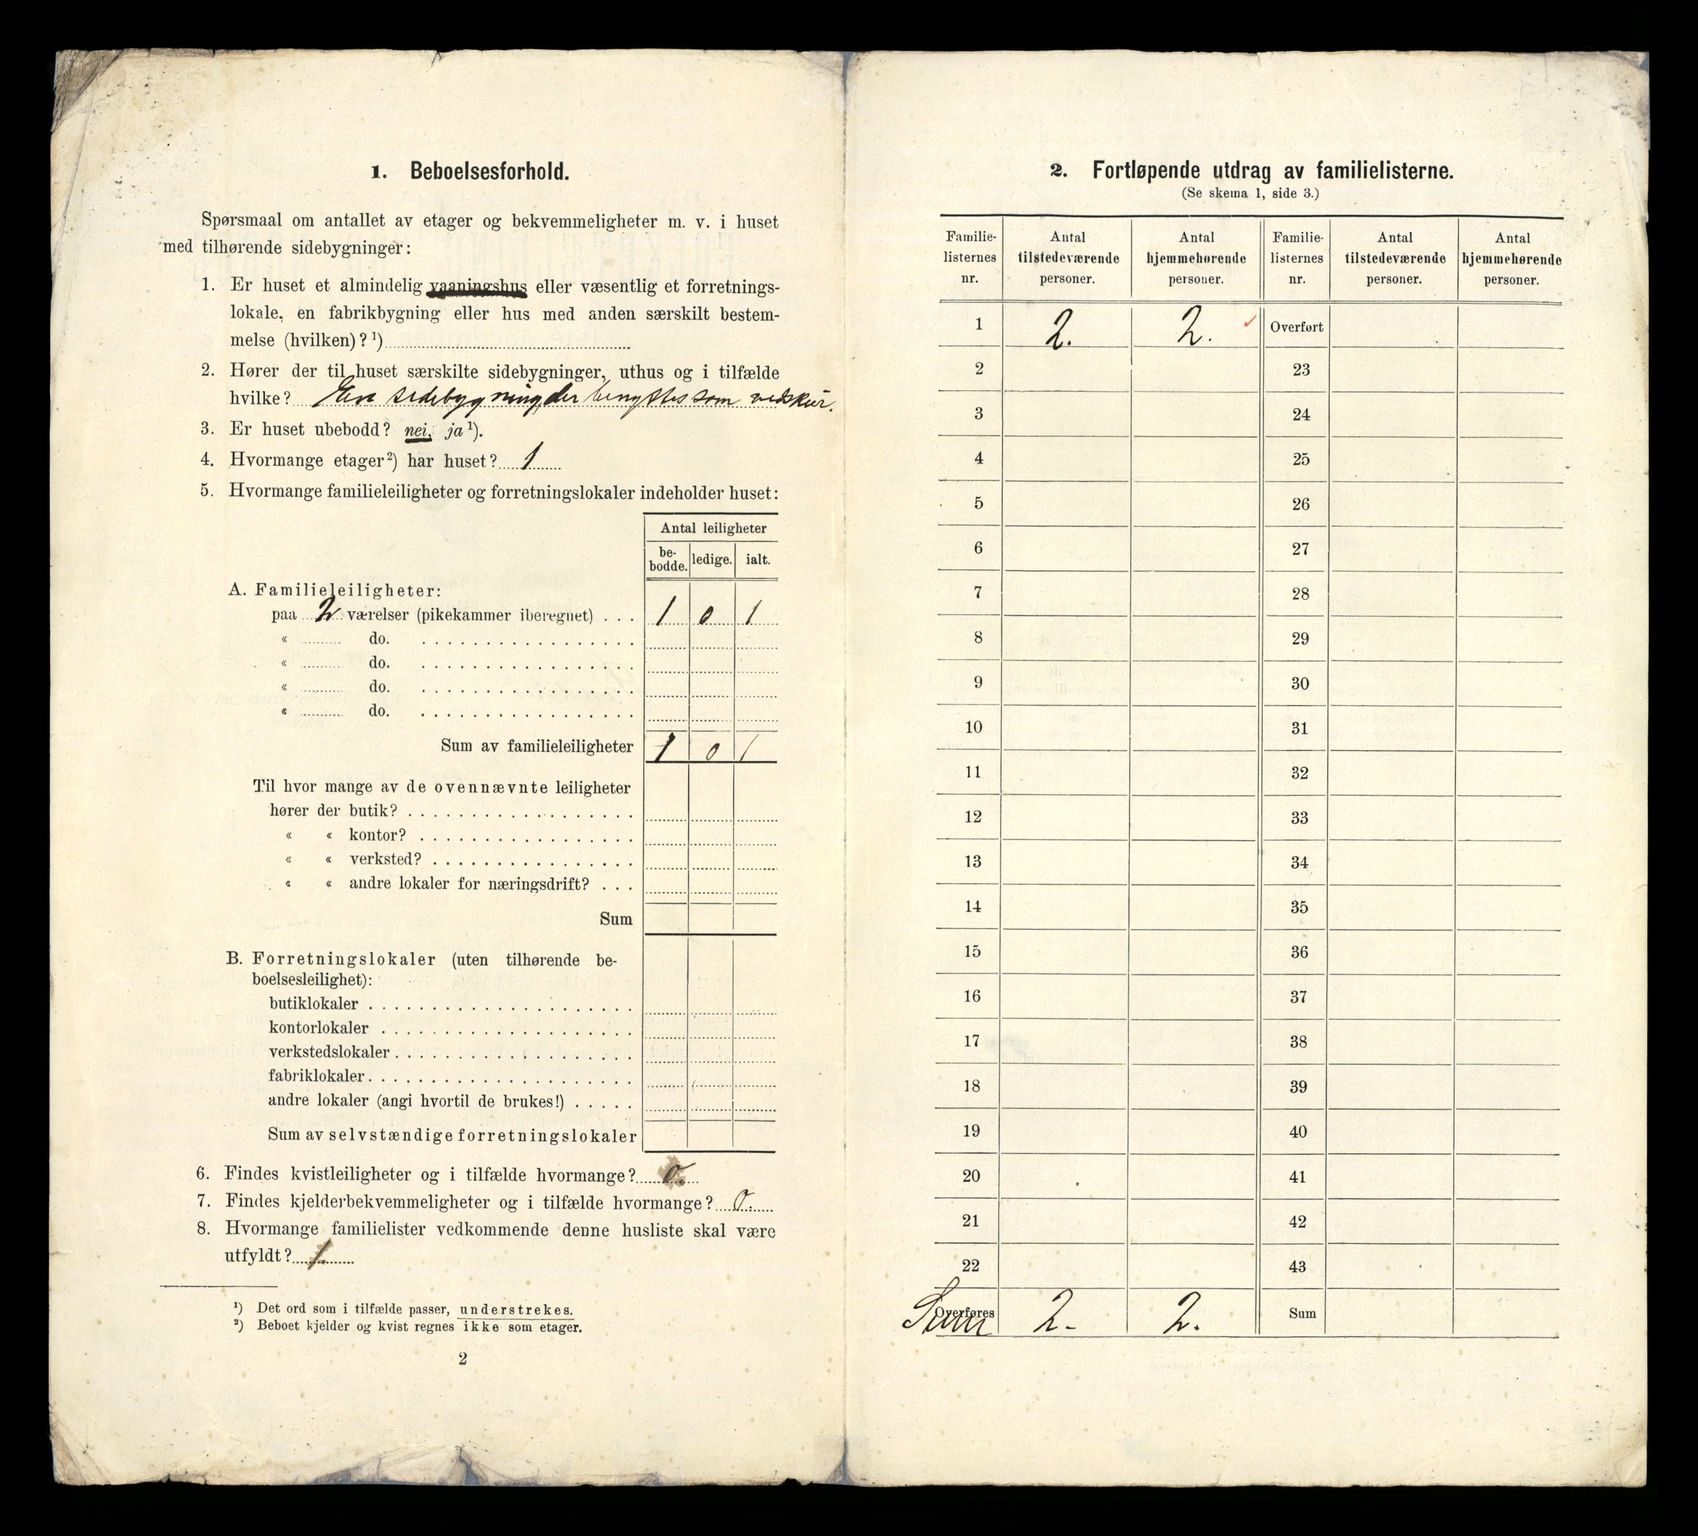 1. Beboelsesforhold.
Spørsmaal om antallet av etager og bekvemmeligheter m. v. i huset
med tilhørende sidebygninger:
1. Er huset et almindelig vaaningshus eller væsentlig et forretnings-
lokale, en fabrikbygning eller hus med anden særskilt bestem-
melse (hvilken)? ¹)
2. Hører der til huset særskilte sidebygninger, uthus og i tilfælde
hvilke? Een sidebygning, der benyttes som vedskur.
3. Er huset ubebodd? nei, ja ¹).
4. Hvormange etager ²) har huset? 1
5. Hvormange familieleiligheter og forretningslokaler indeholder huset:
Antal leiligheter
be-
bodde. ledige. ialt.
A. Familieleiligheter:
paa 2 værelser (pikekammer iberegnet) . . . 1 0 1
« do.
« do.
« do.
« do.
Sum av familieleiligheter 1 0 1
Til hvor mange av de ovennævnte leiligheter
hører der butik?
« « kontor?
« « verksted?
« « andre lokaler for næringsdrift?
Sum
B. Forretningslokaler (uten tilhørende be-
boelsesleilighet):
butiklokaler
kontorlokaler
verkstedslokaler
fabriklokaler
andre lokaler (angi hvortil de brukes!)
Sum av selvstændige forretningslokaler
6. Findes kvistleiligheter og i tilfælde hvormange? 0.
7. Findes kjelderbekvemmeligheter og i tilfælde hvormange? 0.
8. Hvormange familielister vedkommende denne husliste skal være
utfyldt? 1.
¹) Det ord som i tilfælde passer, understrekes.
²) Beboet kjelder og kvist regnes ikke som etager.
2
2. Fortløpende utdrag av familielisterne.
(Se skema 1, side 3.)
Familie- Antal Antal Familie- Antal Antal
listernes tilstedeværende hjemmehørende listernes tilstedeværende hjemmehørende
nr. personer. personer. nr. personer. personer.
1 2. 2. ✓ Overført
2 23
3 24
4 25
5 26
6 27
7 28
8 29
9 30
10 31
11 32
12 33
13 34
14 35
15 36
16 37
17 38
18 39
19 40
20 41
21 42
22 43
Overføres Sum 2- 2. Sum